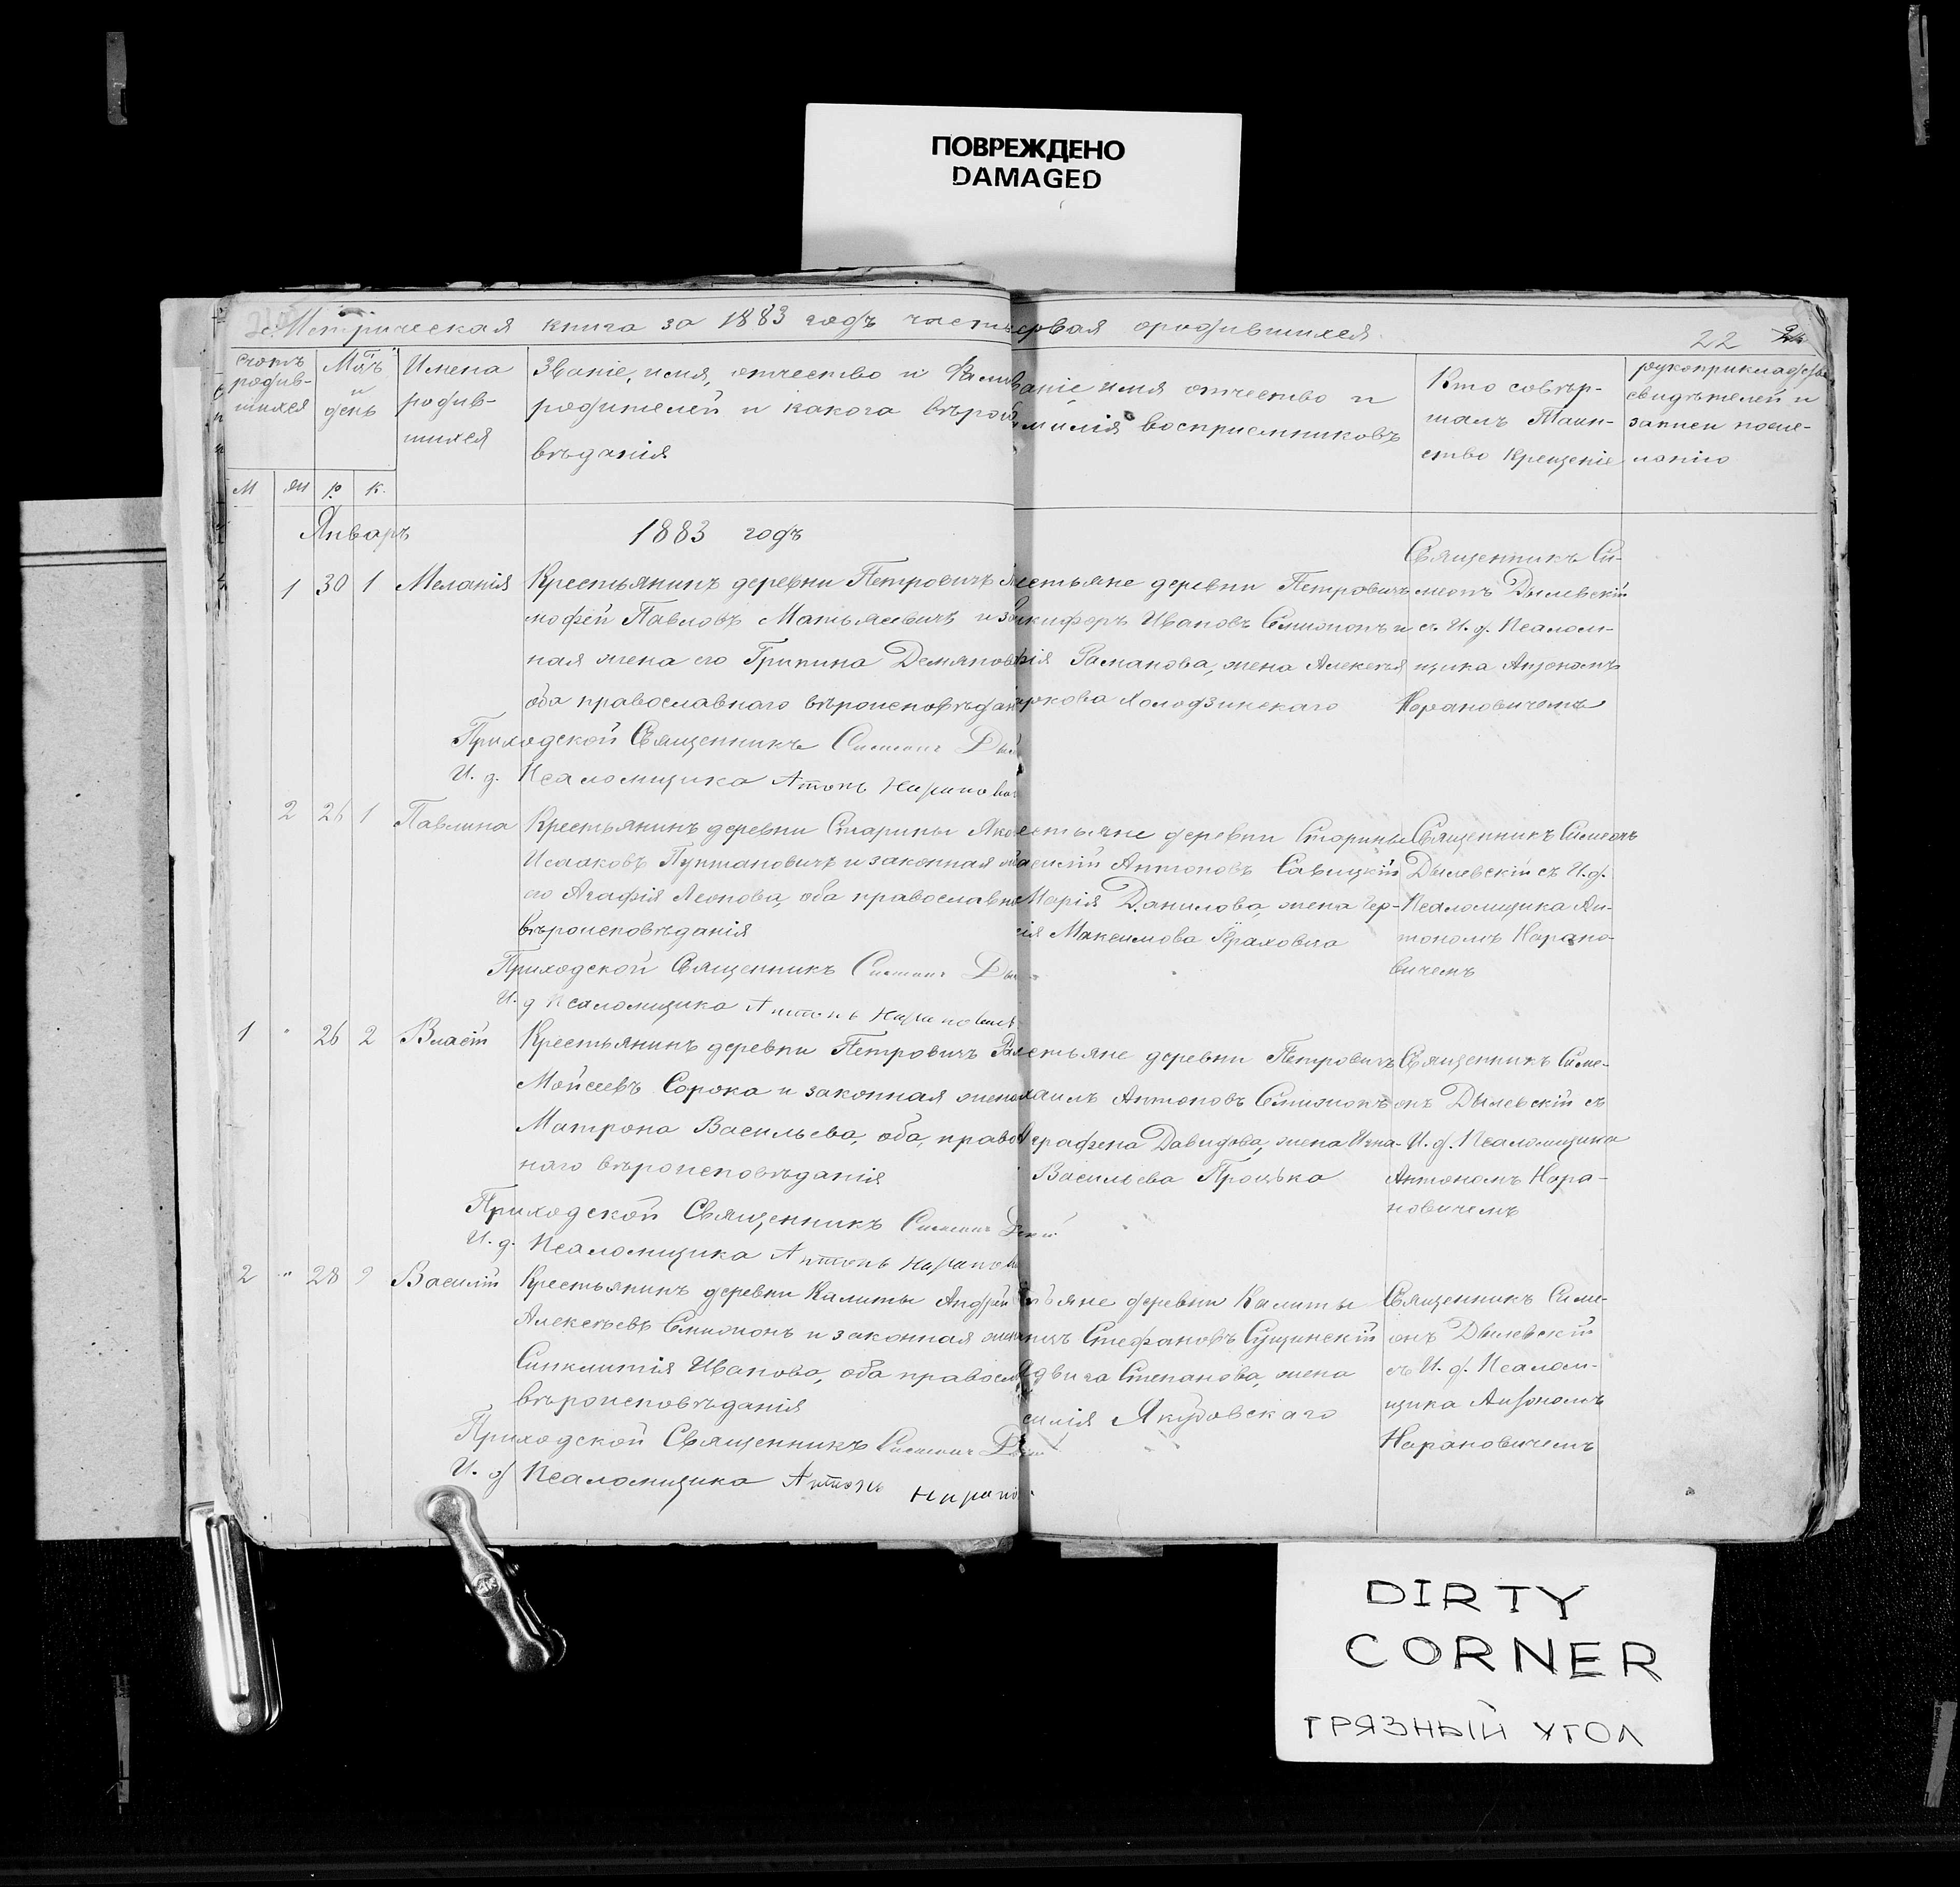 ПОВРЕЖДЕНО
DAMAGED
Метрическая книга за 1883 годъ часть
рвая ородившихся
22
Счотъ
родив-
шихся
Мцъ
и
день
Имена
родив-
шихся
Званіе, имя, отчество и Фами
родителей и какога вѣроі
вѣданія
ваніе имя отчество и
милія восприемниковъ
Кто совѣр-
шалъ Таин-
ство Крещеніе
рукоприкладс
свидѣтелей и
записи поже-
ланію
М ж р. к.
Январъ
1883 годъ
1 30 1 Меланія
Крестьянинъ деревни Петровичъ
мофей Павловъ Матьясевичъ и за
ная жена его Грипина Демянов
оба православнаго вѣроисповѣдан
Приходской Священникъ Симеонъ Ды
И. д. Псаломщика Антонъ Нарано
естьяне деревни Петровичъ
кифоръ Ивановъ Слижонъ и
Раманова, жена Алексѣя
ркова Холодзинскаго
Священникъ Си-
меонъ Дылевскій
съ И. д. Псалом-
щика Антономъ
Нарановичемъ
2 26 1 Павлина
Крестьянинъ деревни Старины Яко
Исааковъ Пуптановичъ и законная
его Агафія Леонова, оба православна
вѣроисповѣданія
Приходской Священникъ Симеонъ Ды
И. д Псаломщика Антонъ Нарановичъ
естьяне деревни Старины
асилій Антоновъ Савицкій
Марія Данилова, жена Гер-
сія Максимова
Священникъ Симеонъ
Дылевскій съ И. д.
Псаломщика Ан-
тономъ Нарано-
вичемъ
1 " 26 2 Власій
Крестьянинъ деревни Петровичъ
Мойсеевъ Сорока и законная жена
Матрона Васильева, оба, право
наго вѣроисповѣданія
Приходской Священникъ Симеонъ
И. д. Псаломщика Антонъ Нарано
естьяне деревни Петровичъ
хаилъ Антоновъ Слижонъ
ерафена Давидова, жена Игна-
Васильева Процька
Священникъ Симе-
онъ Дылевскій съ
И. д. Псаломщика
Антономъ Нара-
новичемъ
2 " 28 2 Василій
Крестьянинъ деревни Калиты Андрей
Алексѣевъ Слижонъ и законная жена
Синклитія Иванова, оба правосл
вѣроисповѣданія
Приходской Священникъ Симеонъ
И. д Псаломщика Антонъ Нарано
ьяне деревни Калиты
Стефановъ Сущинскій
Ядвига Степанова, жена
силія Якубовскаго
Священникъ Симе-
онъ Дылевскій
съ И. д. Псалом-
щика Антономъ
Нарановичемъ
DIRTY
CORNER
ГРЯЗНЫЙ УГОЛ